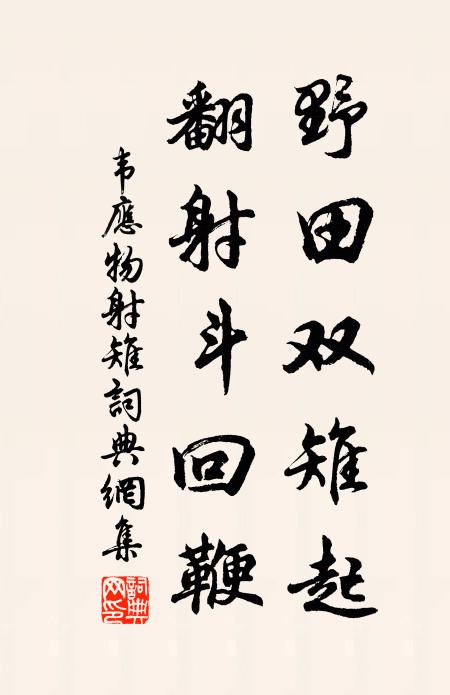 野田双雉起
翻射斗回鞭
韦應物射雉詞典網集
詞典网印